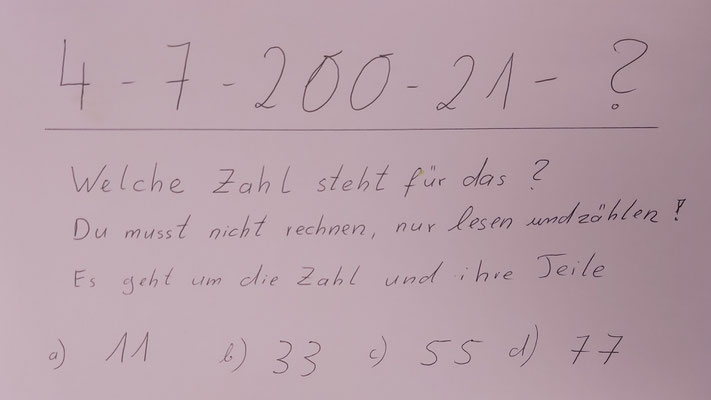 4 - 7 - 200 - 21 - ?
Welche Zahl steht für das ?
Du musst nicht rechnen, nur lesen und zählen !
Es geht um die Zahl und ihre Teile
a) 11 b) 33 c) 55 d) 77